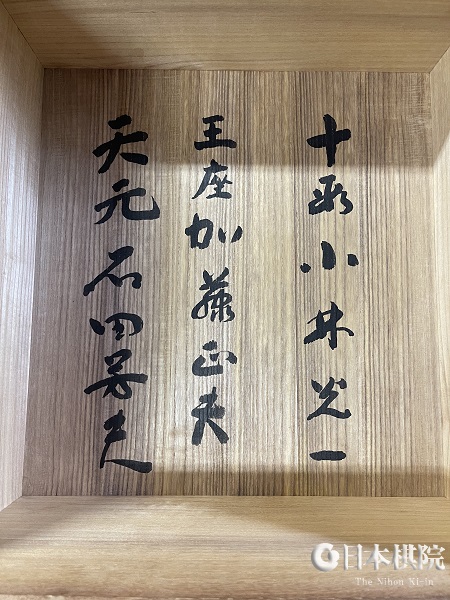 十段 小林光一
王座 加藤正夫
天元 石田芳夫
日本棋院
The Nihon Ki-in